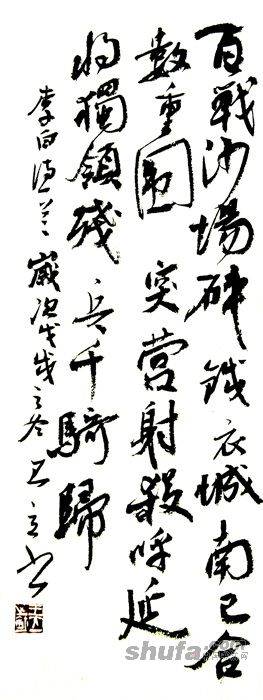 百戰沙場碎鐵衣城南已合
數重圍突營射殺呼延
將獨領殘兵千騎歸
李白詩 歲次戊戌之冬
shufa.com